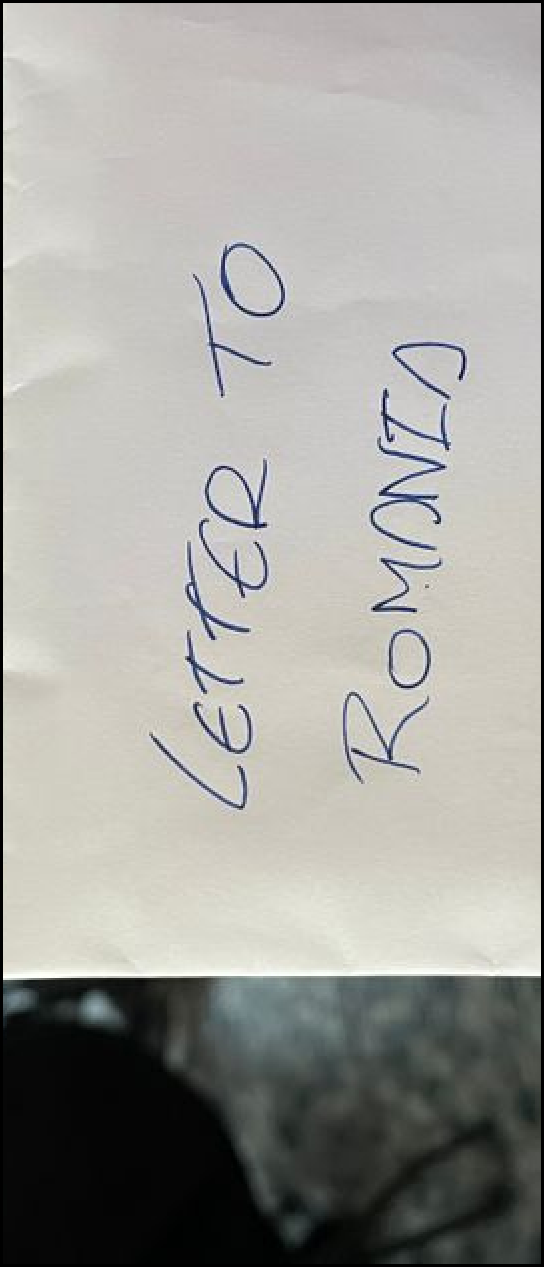 LETTER TO
ROMANIA